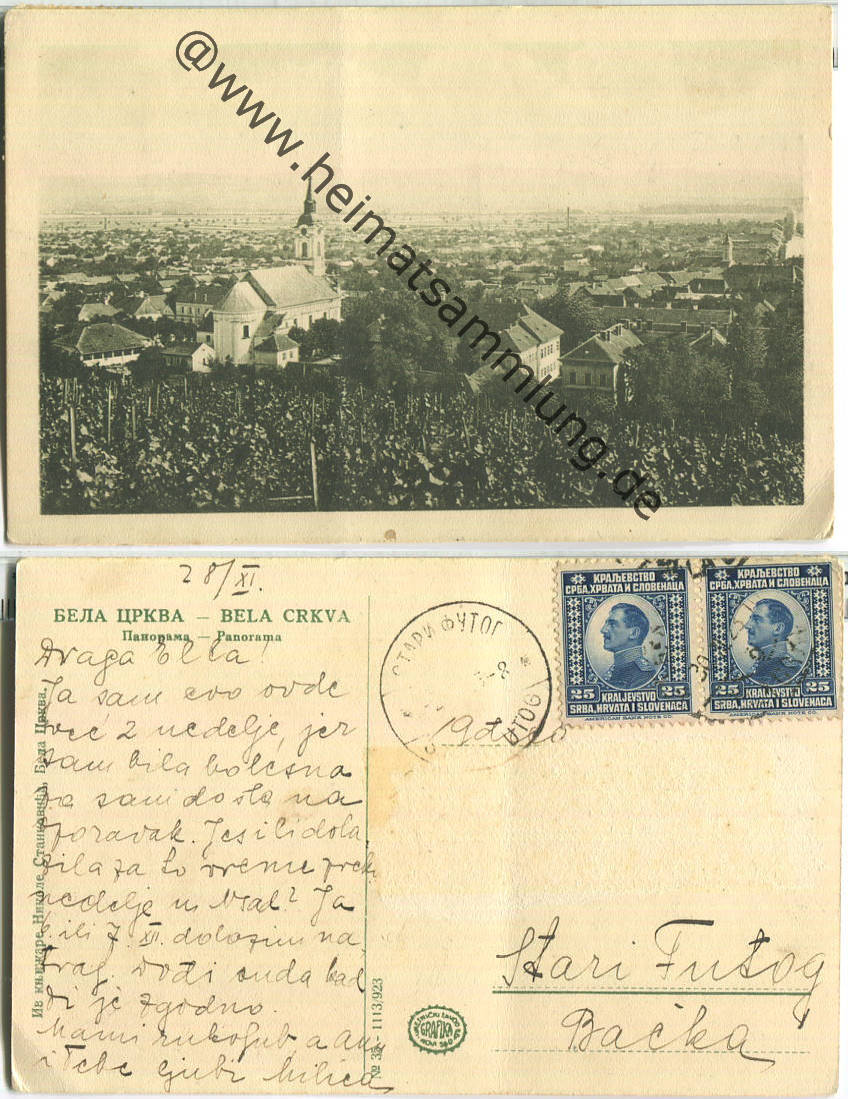 @www.heimatsammlung.de
28/XI.
БЕЛА ЦРКВА — BELA CRKVA
Панорама — Panorama
Draga Ella!
Ja sam evo ovde
već 2 nedelje, jer
sam bila bolesna
pa sam došla na
oporavak. Jesi li dola
zila za to vreme preko
nedelje u
Ja
6 ili 7. XII. dolazim na
trag. Dođi onda kad
ti je zgodno.
Mami rukoljub a
i Tebe ljubi Milica
Из књижаре Николе Станковића, Бела Црква.
№ 1113/923
GRAFIKA
СТАРИ ФУТОГ
КРАЉЕВСТВО
СРБА, ХРВАТА И СЛОВЕНАЦА
25 KRALJEVSTVO 25
SRBA, HRVATA I SLOVENACA
AMERICAN BANK NOTE CO.
КРАЉЕВСТВО
СРБА, ХРВАТА И СЛОВЕНАЦА
25 KRALJEVSTVO 25
SRBA, HRVATA I SLOVENACA
AMERICAN BANK NOTE CO.
Stari Futog
Bačka